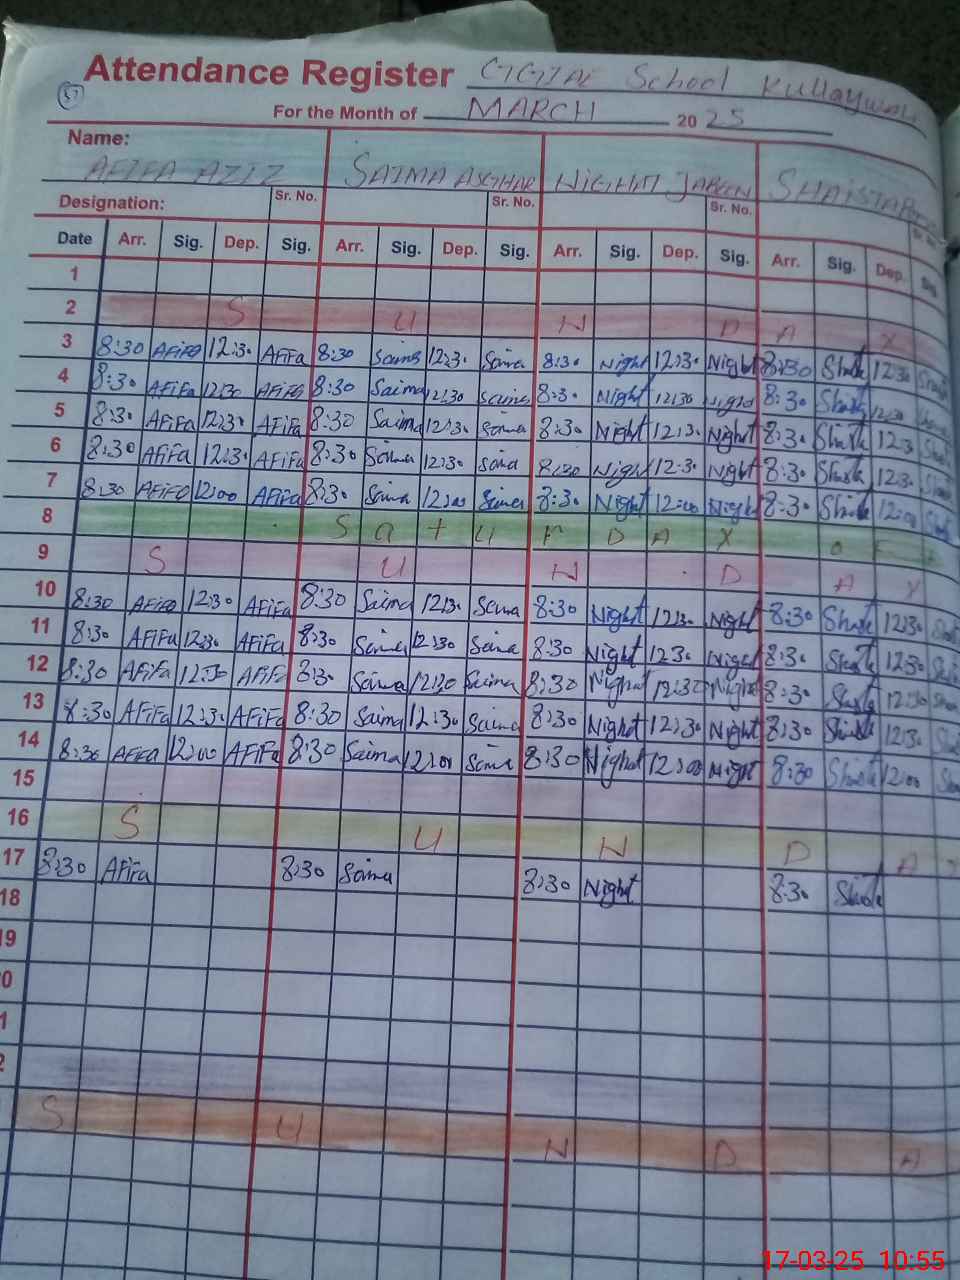 Attendance Register School Kullaywali
57 For the Month of MARCH 2025
Name:
AFIFA AZIZ SAIMA ASGHAR NIGHAT JABEEN SHAISTA
Designation: Sr. No. Sr. No. Sr. No. Sr.
Date Arr. Sig. Dep. Sig. Arr. Sig. Dep. Sig. Arr. Sig. Dep. Sig. Arr. Sig. Dep. Sig
1
2 S U N D A Y
3 8:30 AFiFa 12:30 AFiFa 8:30 Saima 12:30 Saima 8:30 Night 12:30 Night 8:30 12:30
4 8:30 AFiFa 12:30 AFiFa 8:30 Saima 12:30 Saima 8:30 Night 12:30 Night 8:30 12:30
5 8:30 AFiFa 12:30 AFiFa 8:30 Saima 12:30 Saima 8:30 Night 12:30 Night 8:30 12:30
6 8:30 AFiFa 12:30 AFiFa 8:30 Saima 12:30 Saima 8:30 Night 12:30 Night 8:30 12:30
7 8:30 AFiFa 12:00 AFiFa 8:30 Saima 12:00 Saima 8:30 Night 12:00 Night 8:30 12:00
8 S a t u r D A Y O F F
9 S U N D A Y
10 8:30 AFiFa 12:30 AFiFa 8:30 Saima 12:30 Saima 8:30 Night 12:30 Night 8:30 12:30
11 8:30 AFiFa 12:30 AFiFa 8:30 Saima 12:30 Saima 8:30 Night 12:30 Night 8:30 12:30
12 8:30 AFiFa 12:30 AFiFa 8:30 Saima 12:30 Saima 8:30 Night 12:30 Night 8:30 12:30
13 8:30 AFiFa 12:30 AFiFa 8:30 Saima 12:30 Saima 8:30 Night 12:30 Night 8:30 12:30
14 8:30 AFiFa 12:00 AFiFa 8:30 Saima 12:00 Saima 8:30 Night 12:00 Night 8:30 12:00
15
16 S U N D A Y
17 8:30 AFiFa 8:30 Saima 8:30 Night 8:30
18
19
0
1
2
S U N D A
17-03-25 10:55